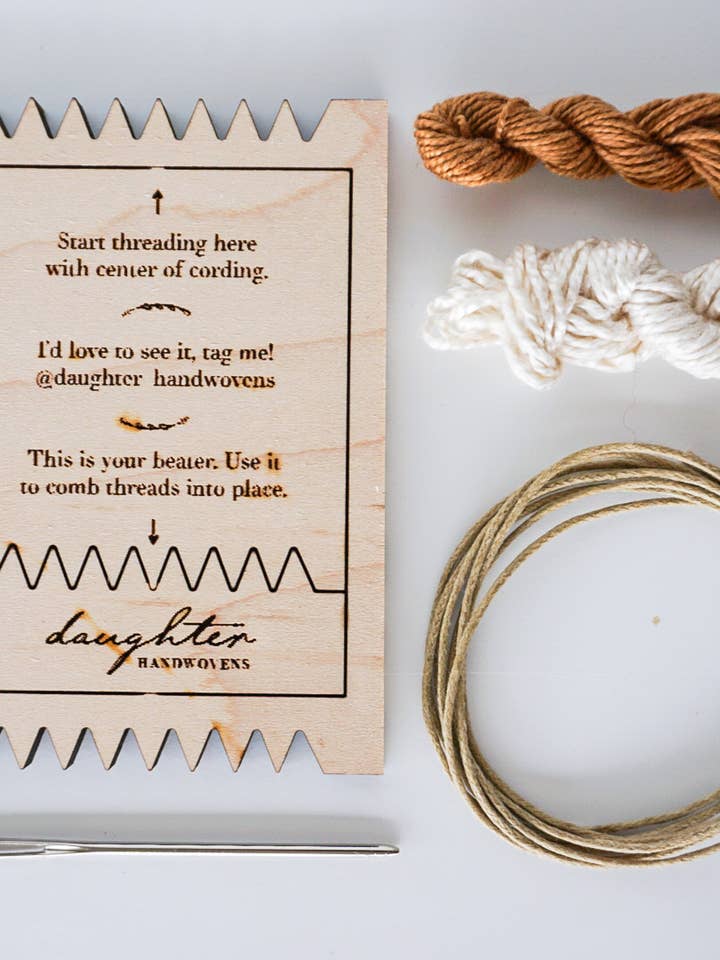 Start threading here
with center of cording.
I'd love to see it, tag me!
@daughter_handwovens
This is your beater. Use it
to comb threads into place.
daughter
HANDWOVENS